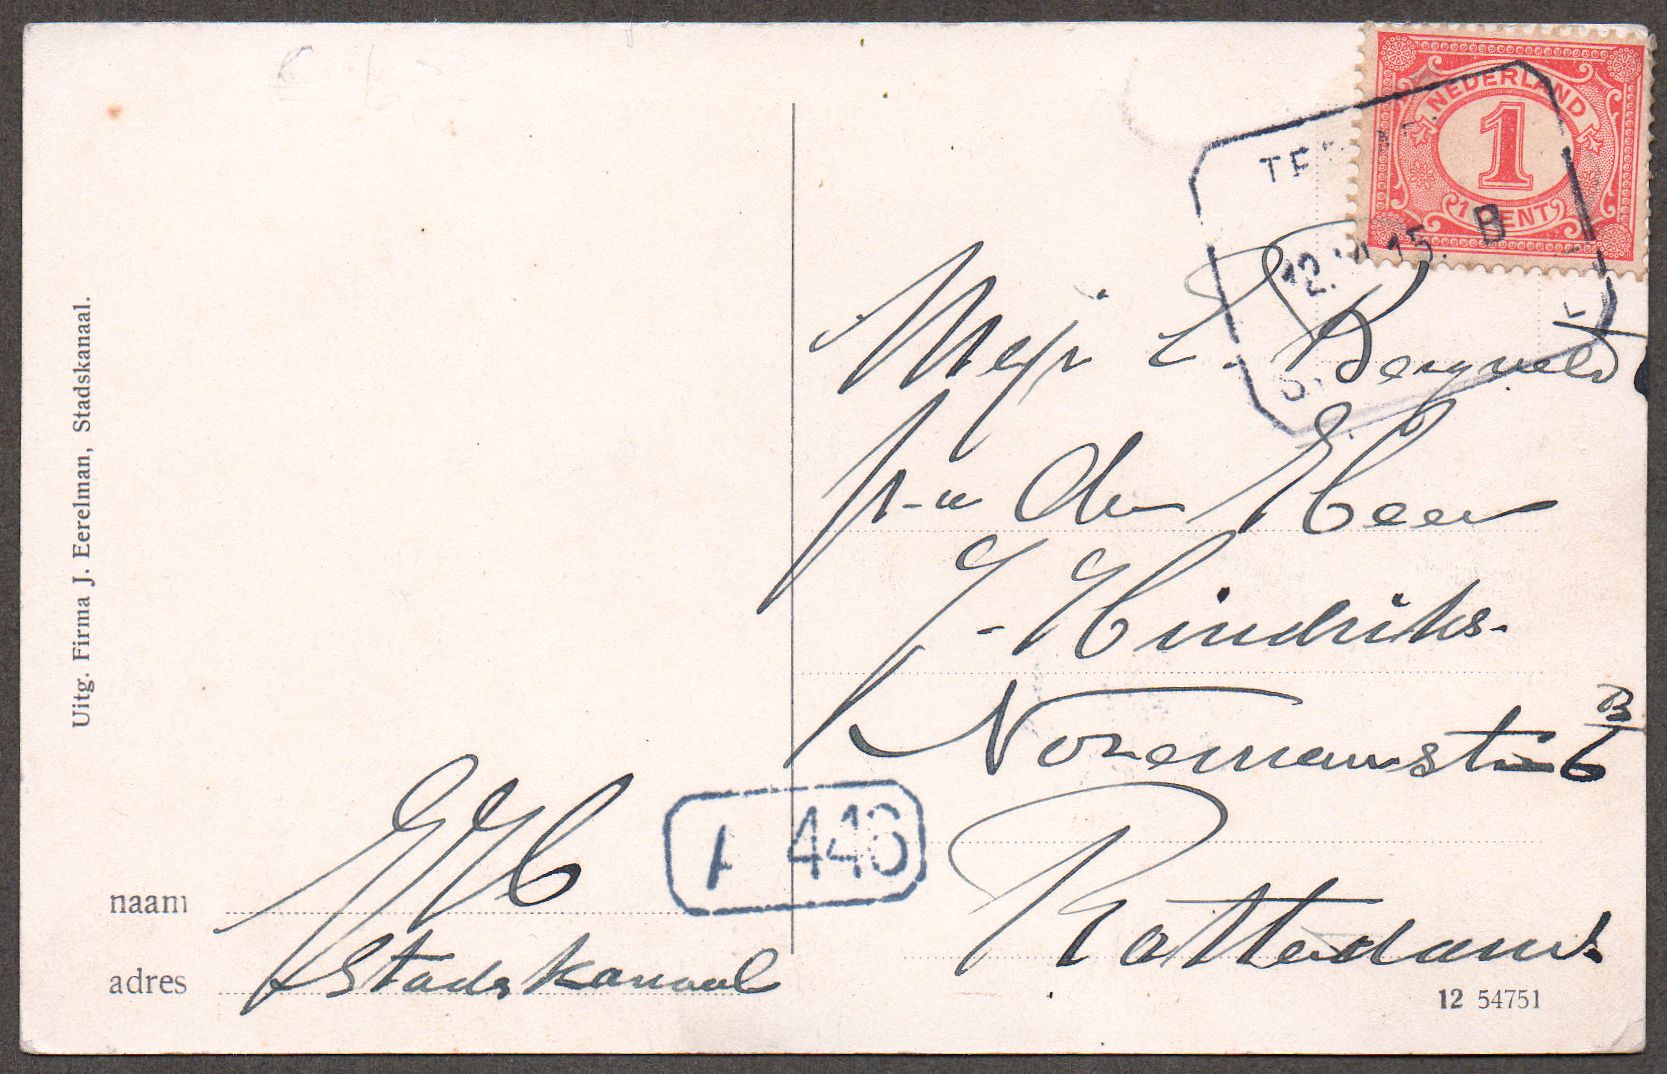 NEDERLAND
1
1 CENT
12. VI 15. B
Mejr E. Bergveld
p-a den Heer
J-Hindriks-
Nozemanstr 6 B
Rotterdam.
A 446
naam JH
adres Stadskanaal
12 54751
Uitg. Firma J. Eerelman, Stadskanaal.